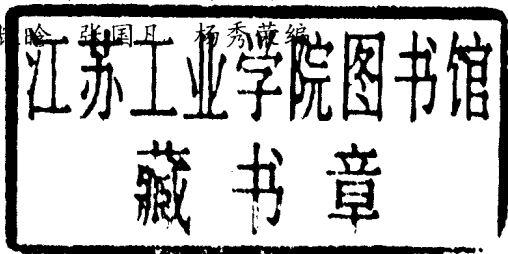 张国凡 杨秀荣编
江苏工业学院图书馆
藏书章